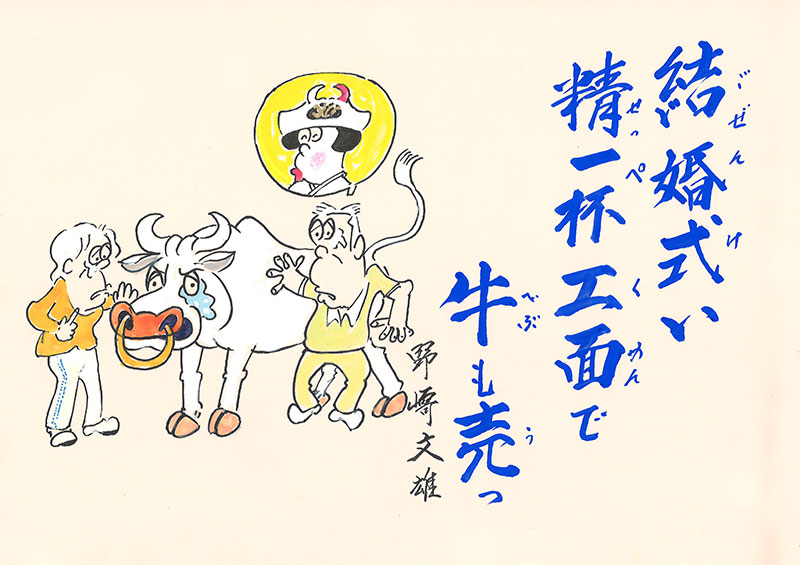 ごぜんけ
結婚式い
せっぺ くめん
精一杯工面で
べぶ う
牛も売っ
野﨑文雄